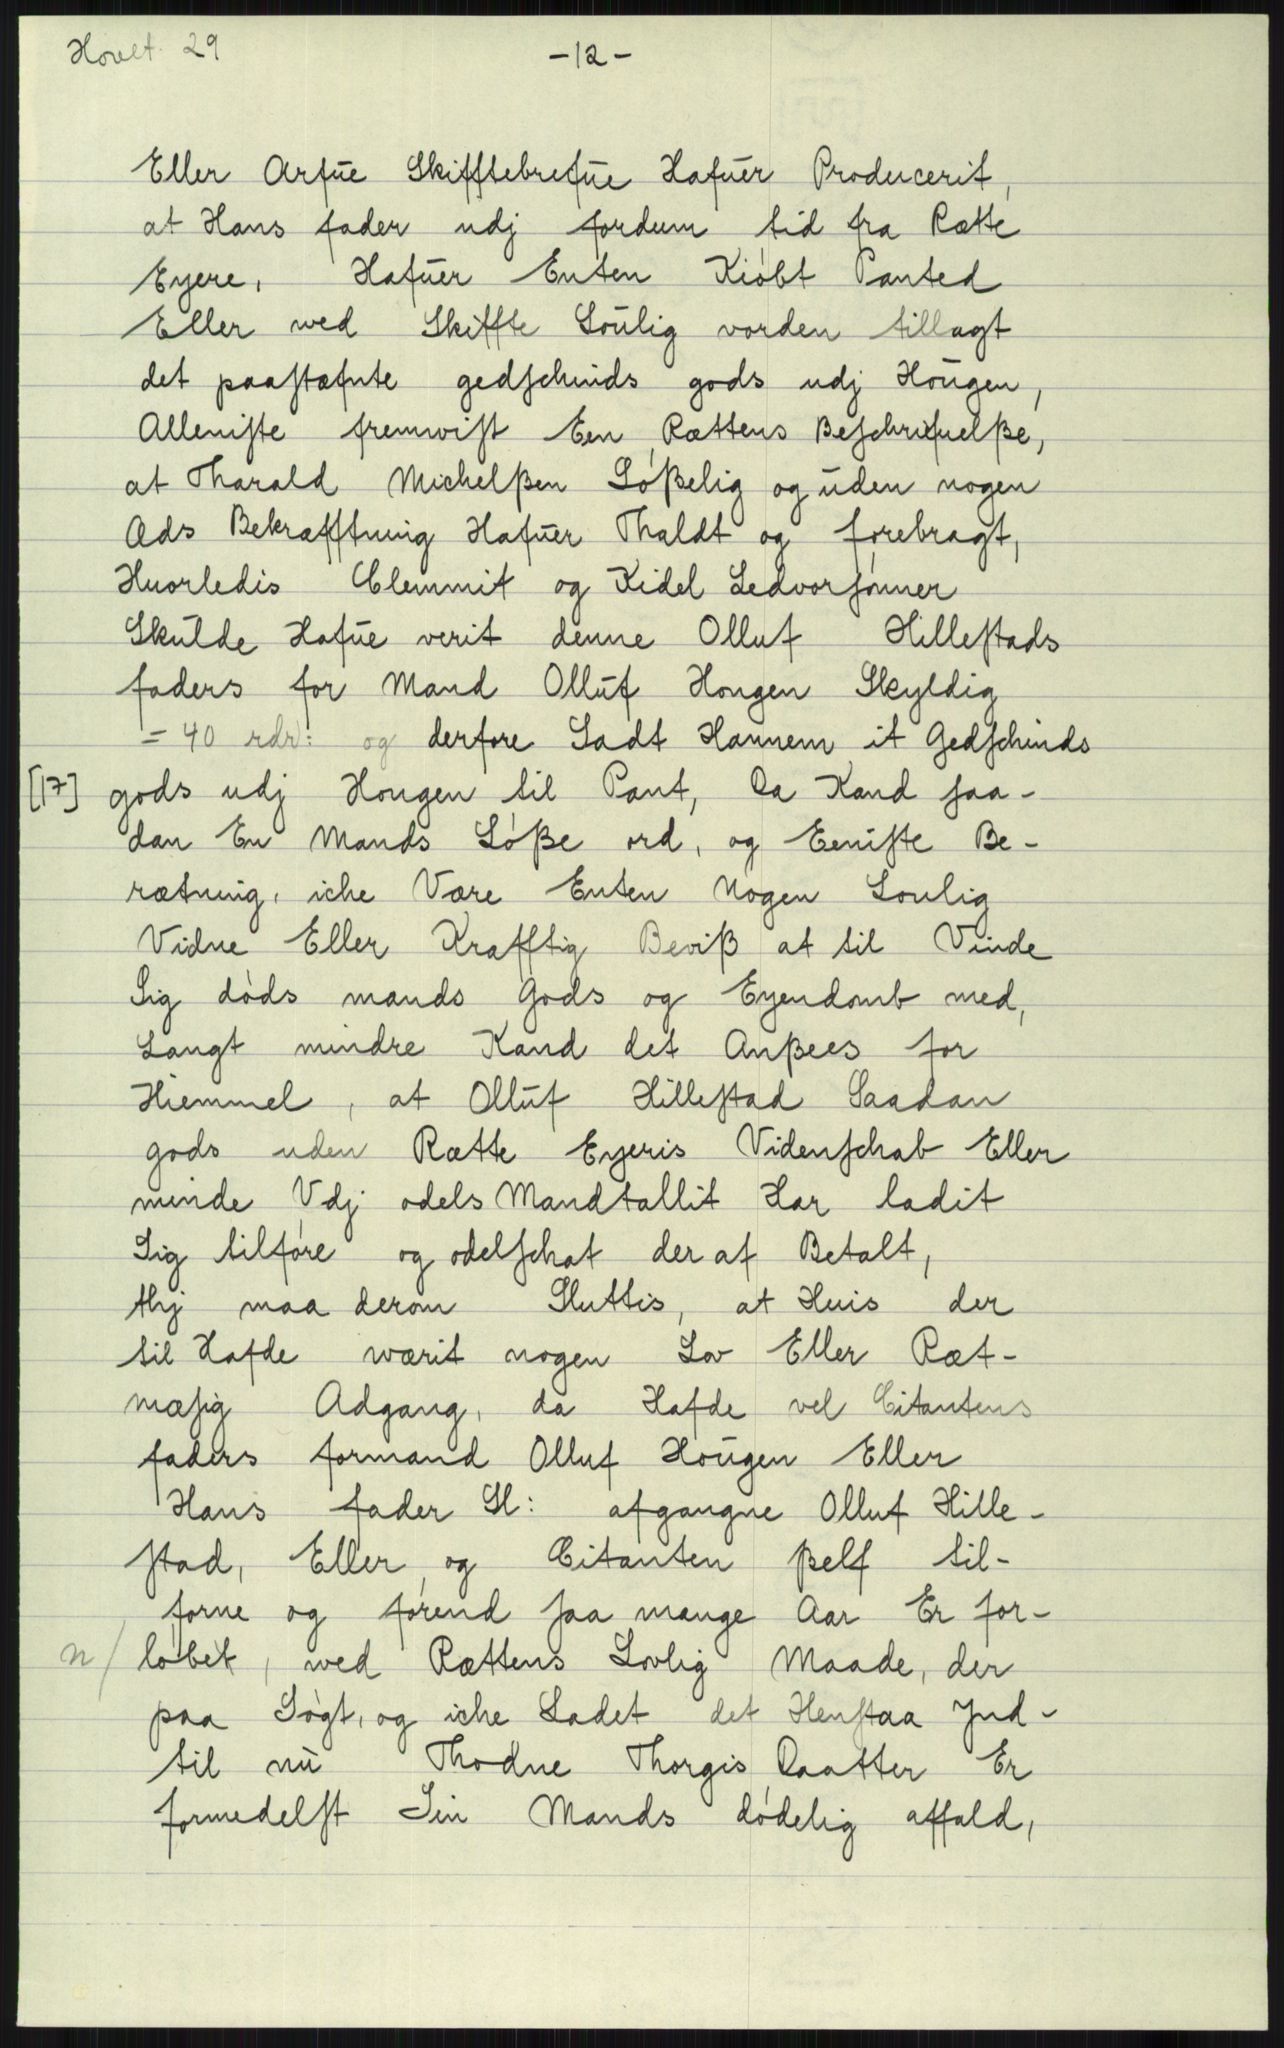 Hovet. 29
-12-
Eller Arfŭe Skifftebrefŭe Hafŭer Producerit,
at Hans fader udj fordum tid fra Rætte
Eyere, Hafŭer Enten Kiøbt Panted
Eller wed Skiffte Loŭlig vorden tillagt
det paaſtæfnte gedſchinds gods udj Hoŭgen,
Alleniſte fremwiſt Een Rættens Beſchrifuelße,
at Tharald Michelßen Lößelig og uden nogen
Æds Bekræfftning Hafŭer Thaldt og førebragt,
Huorledis Clemmit og Kidel Ledvorſønner
Skŭlde Hafŭe verit denne Olluf Hilleſtads
faders for Mand Ollŭf Hougen Skyldig
= 40 rdr: og derfore Sadt Hannem it Gedſchinds
[17] gods udj Hougen til Pant, Da Kand ſaa-
dan En Mands Löße ord, og Eeniſte Be-
rætning, iche Være Enten Nogen Loulig
Vidne Eller Krafftig Beviß at til Vinde
Sig døds mands Gods og Eyendomb med,
Langt mindre Kand det Anßees for
Hiemmel, at Ollŭf Hilleſtad Saadan
gods uden Rætte Eyeris Videnſchab Eller
minde Vdj odels Mandtallit Har ladit
Sig tilføre og odelſchat der af Betalt,
thj maa derom Sluttis, at Huis der
til Hafde wærit nogen Lov Eller Ræt-
mæſig Adgang, da Hafde vel Citantens
faders formand Olluf Hoŭgen Eller
Hans fader Sl: afgangne Olluf Hille-
ſtad, Eller og Citanten ßelf til-
forne og førend ſaa mange Aar Er for-
n/ løbet, wed Rættens Lovlig Maade, der
paa Søgt, og iche Ladet det Henſtaa Jnd-
til nŭ Thodne Thorgis Daatter Er
formedelſt Sin Mands dødelig affald,